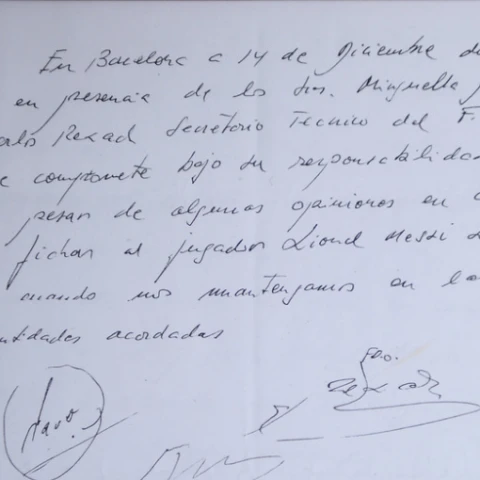 En Barcelona a 14 de Diciembre d
en presencia de los Srs. Minguella
Rexad Secretario Tecnico del F.
compromete bajo su responsabilidad
pesar de algunas opiniones en
fichar al jugador Lionel Messi
cuando nos mantengamos en la
ntidades acordadas